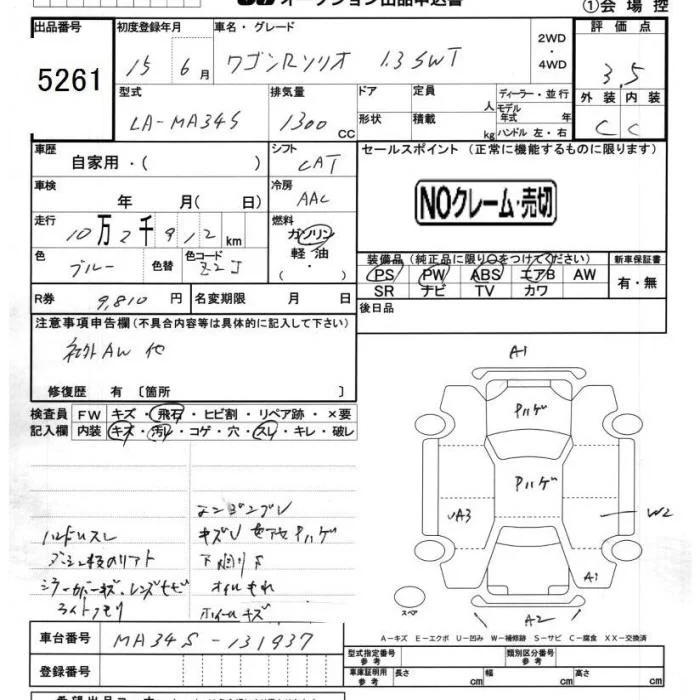 オークション出品申込書
①会場控
出品番号 初度登録年月 車名・グレード 評価点
5261 15 年 6 月 ワゴンRソリオ 1.3 SWT 2WD・4WD 3.5
型式 排気量 ドア 定員 人 ディーラー・並行 外装 内装
LA-MA34S 1300 CC 形状 積載 kg モデル年式 年 ハンドル 左・右 C C
車歴 自家用・( ) シフト CAT セールスポイント (正常に機能するものに限ります)
車検 年 月( 日) 冷房 AAC
NOクレーム・売切
走行 10万2千912km 燃料 ガソリン 軽油 ( ・ )
色 ブルー 色替 色コード Z2J
装備品 (純正品に限り○をつけてください) 新車保証書
PS PW ABS エアB AW 有・無
SR ナビ TV カワ
R券 9,810 円 名変期限 月 日 後日品
注意事項申告欄(不具合内容等は具体的に記入して下さい)
社外AW 他
修復歴 有 [箇所 ]
検査員 FW キズ・飛石・ヒビ割・リペア跡・×要
記入欄 内装 キズ・汚れ・コゲ・穴・スレ・キレ・破レ
A1
Pハゲ
Pハゲ
A3
W2
A1
A2
スペア
キズU
Pハゲ
ハンドルスレ
下回リサ
オイルもれ
ライトクモリ
ホイールキズ
A−キズ E−エクボ U−凹み W−補修跡 S−サビ C−腐食 XX−交換済
車台番号 MA34S-131937
型式指定番号 参考 類別区分番号 参考
登録番号 車庫証明用 参考 長さ cm 幅 cm 高さ cm